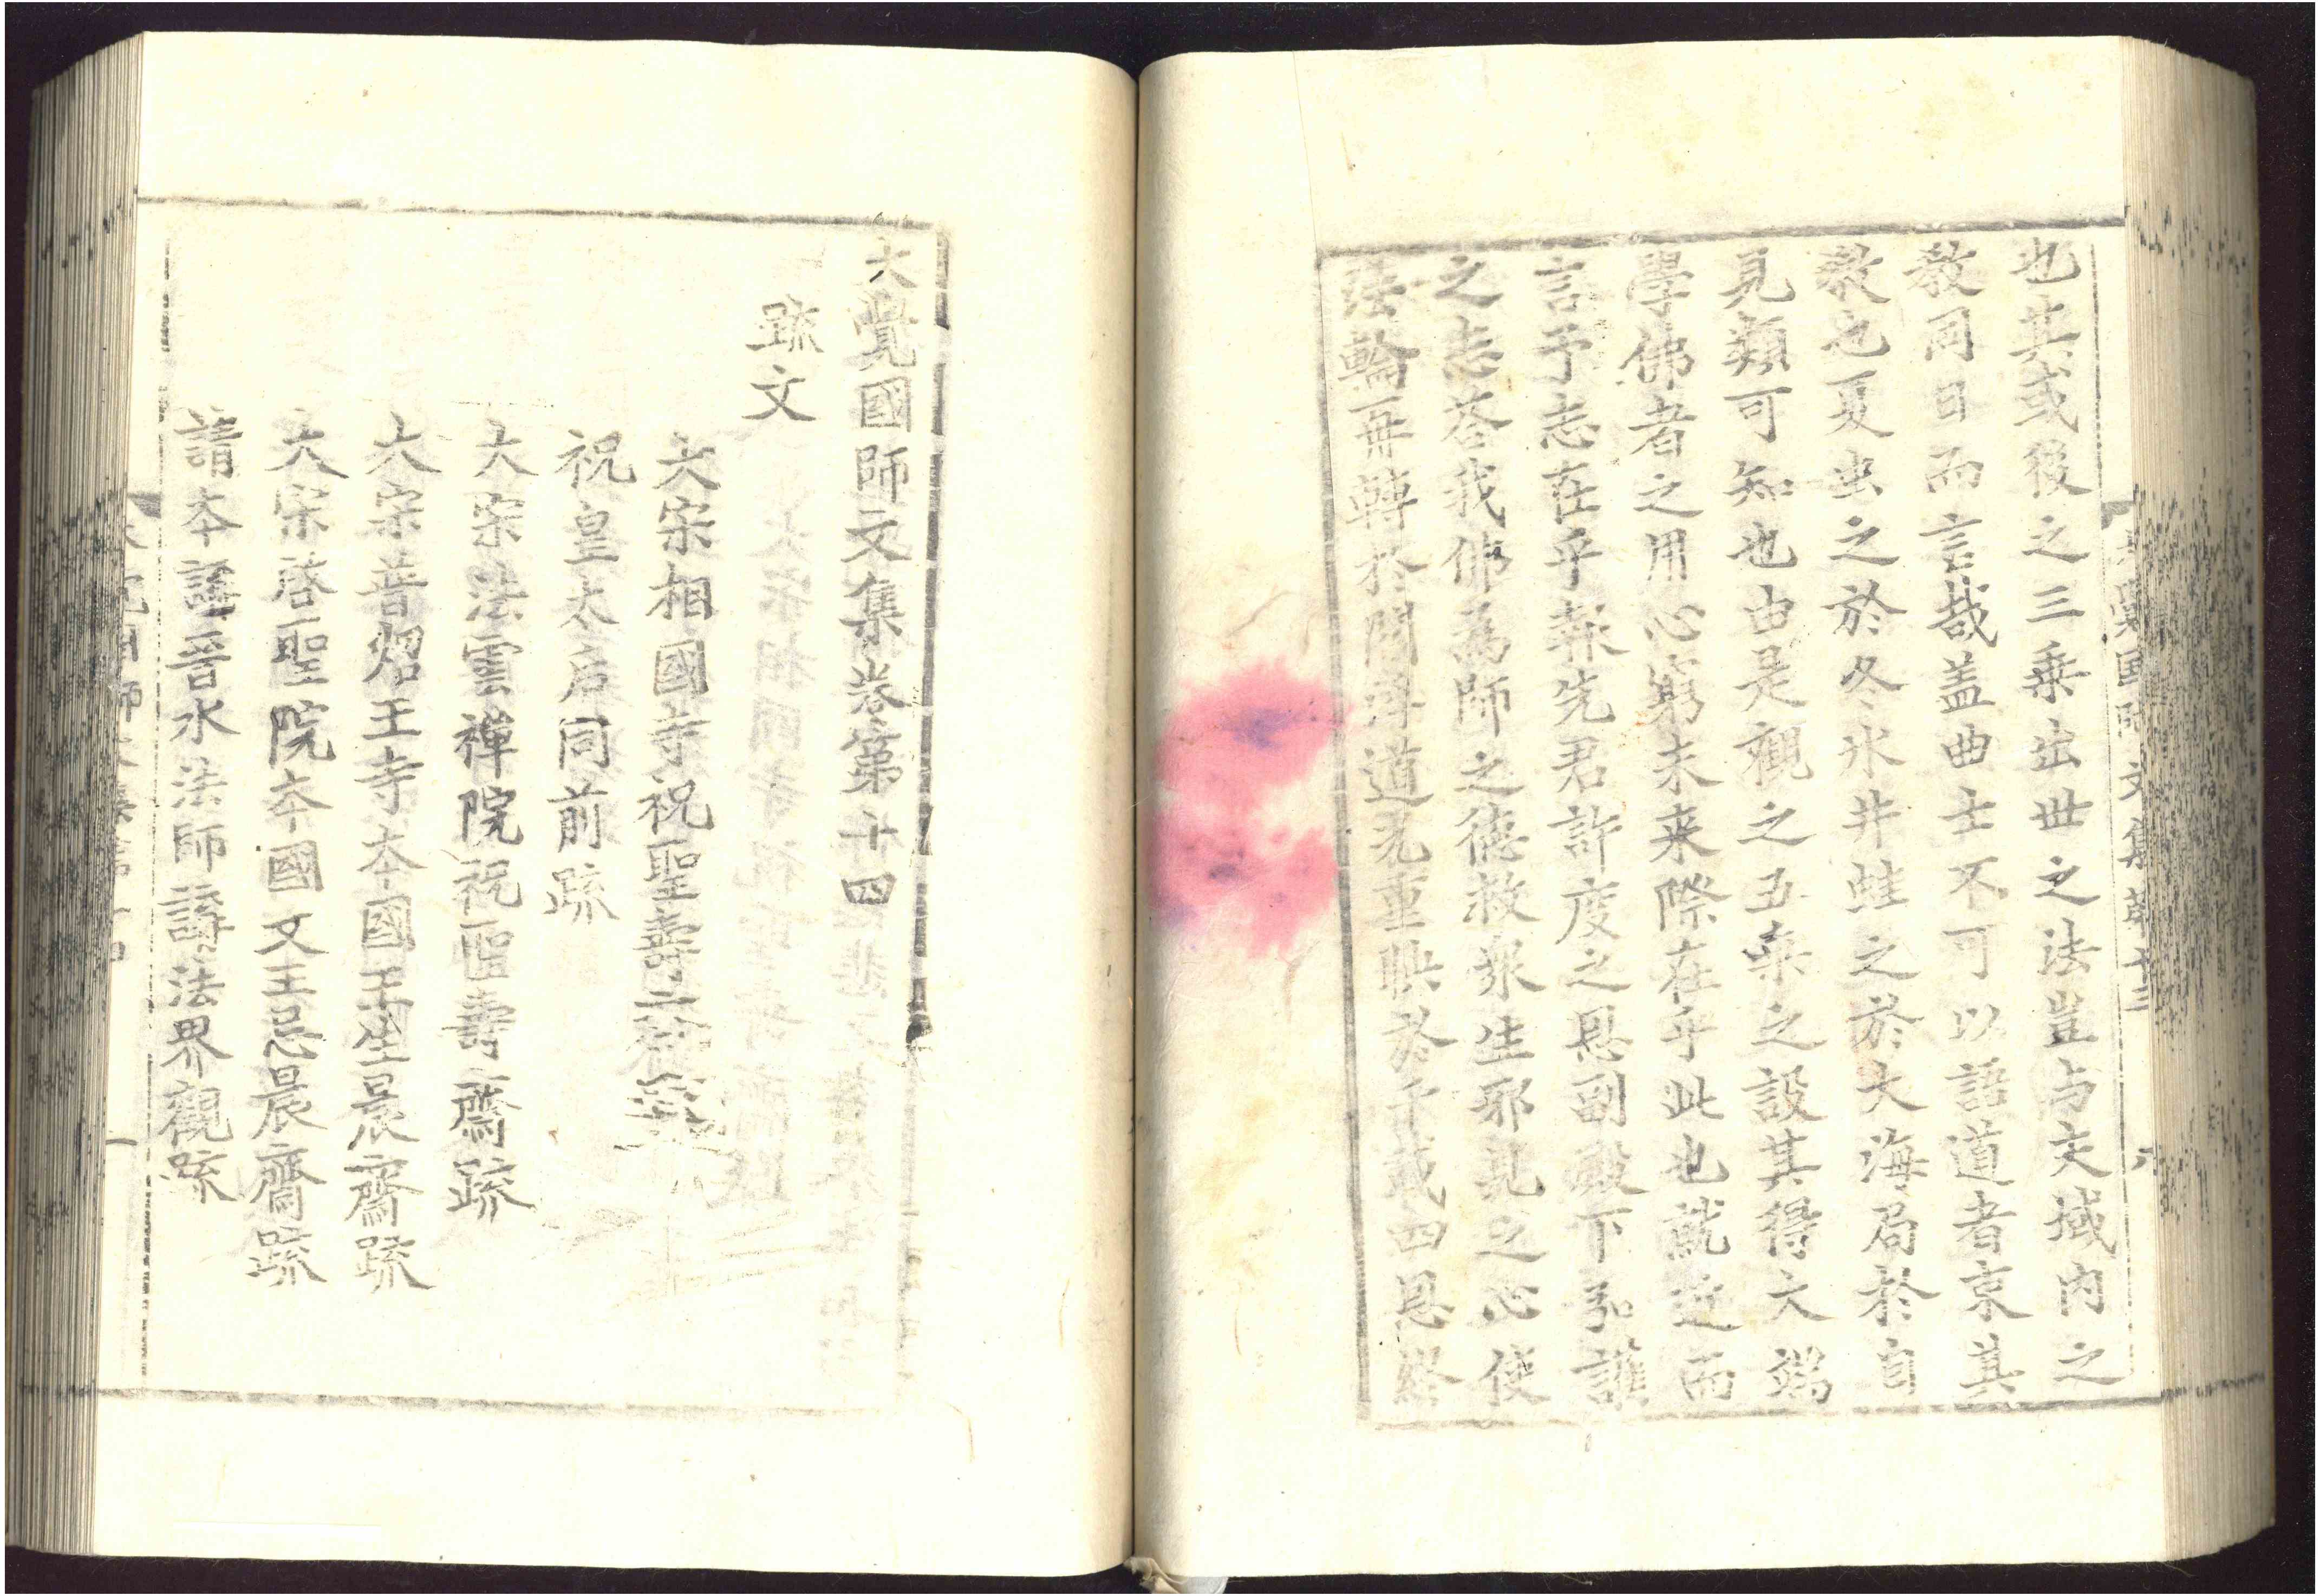 大覺國師文集第十三 六
也其或後之三乗出世之法豈与夫域内之
教同日而言哉盖曲士不可以語道者束其
教也夏虫之於冬氷井蛙之於大海局於自
見類可知也由是觀之五乗之設其得大端
學佛者之用心窮未来際在乎此也就近而
言予志在乎報先君許度之恩副殿下弘護
之志荅我佛爲師之德救衆生邪見之心使
法輪再轉於開道光重映於千載四恩
大覺國師文集卷第十四
䟽文
大宋相國寺祝聖壽齋䟽
祝皇太后同前䟽
大宋法雲禅院祝聖壽齋䟽
大宋普炤王寺本國王生晨齋䟽
大宋啓聖院本國文王忌晨齋䟽
請本講晉水法師講法界觀䟽
國師文集第十四 一